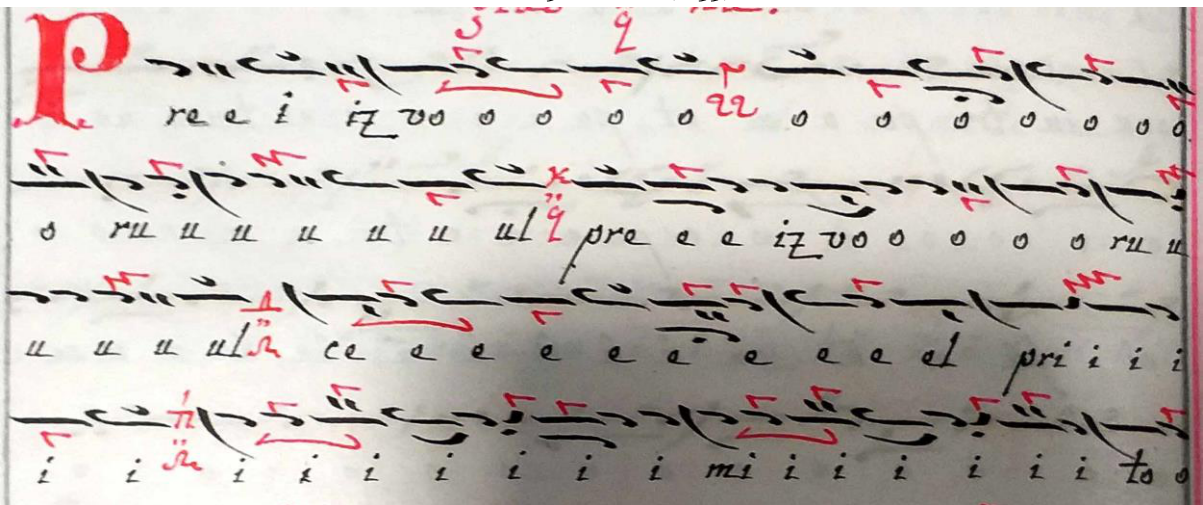 P re e i iz vo o o o o o o o o o o o
o ru u u u u u ul pre e e iz vo o o o o ru u
u u u ul ce e e e e e e e e el pri i i i
i i i i i i i i i mi i i i i i i to o